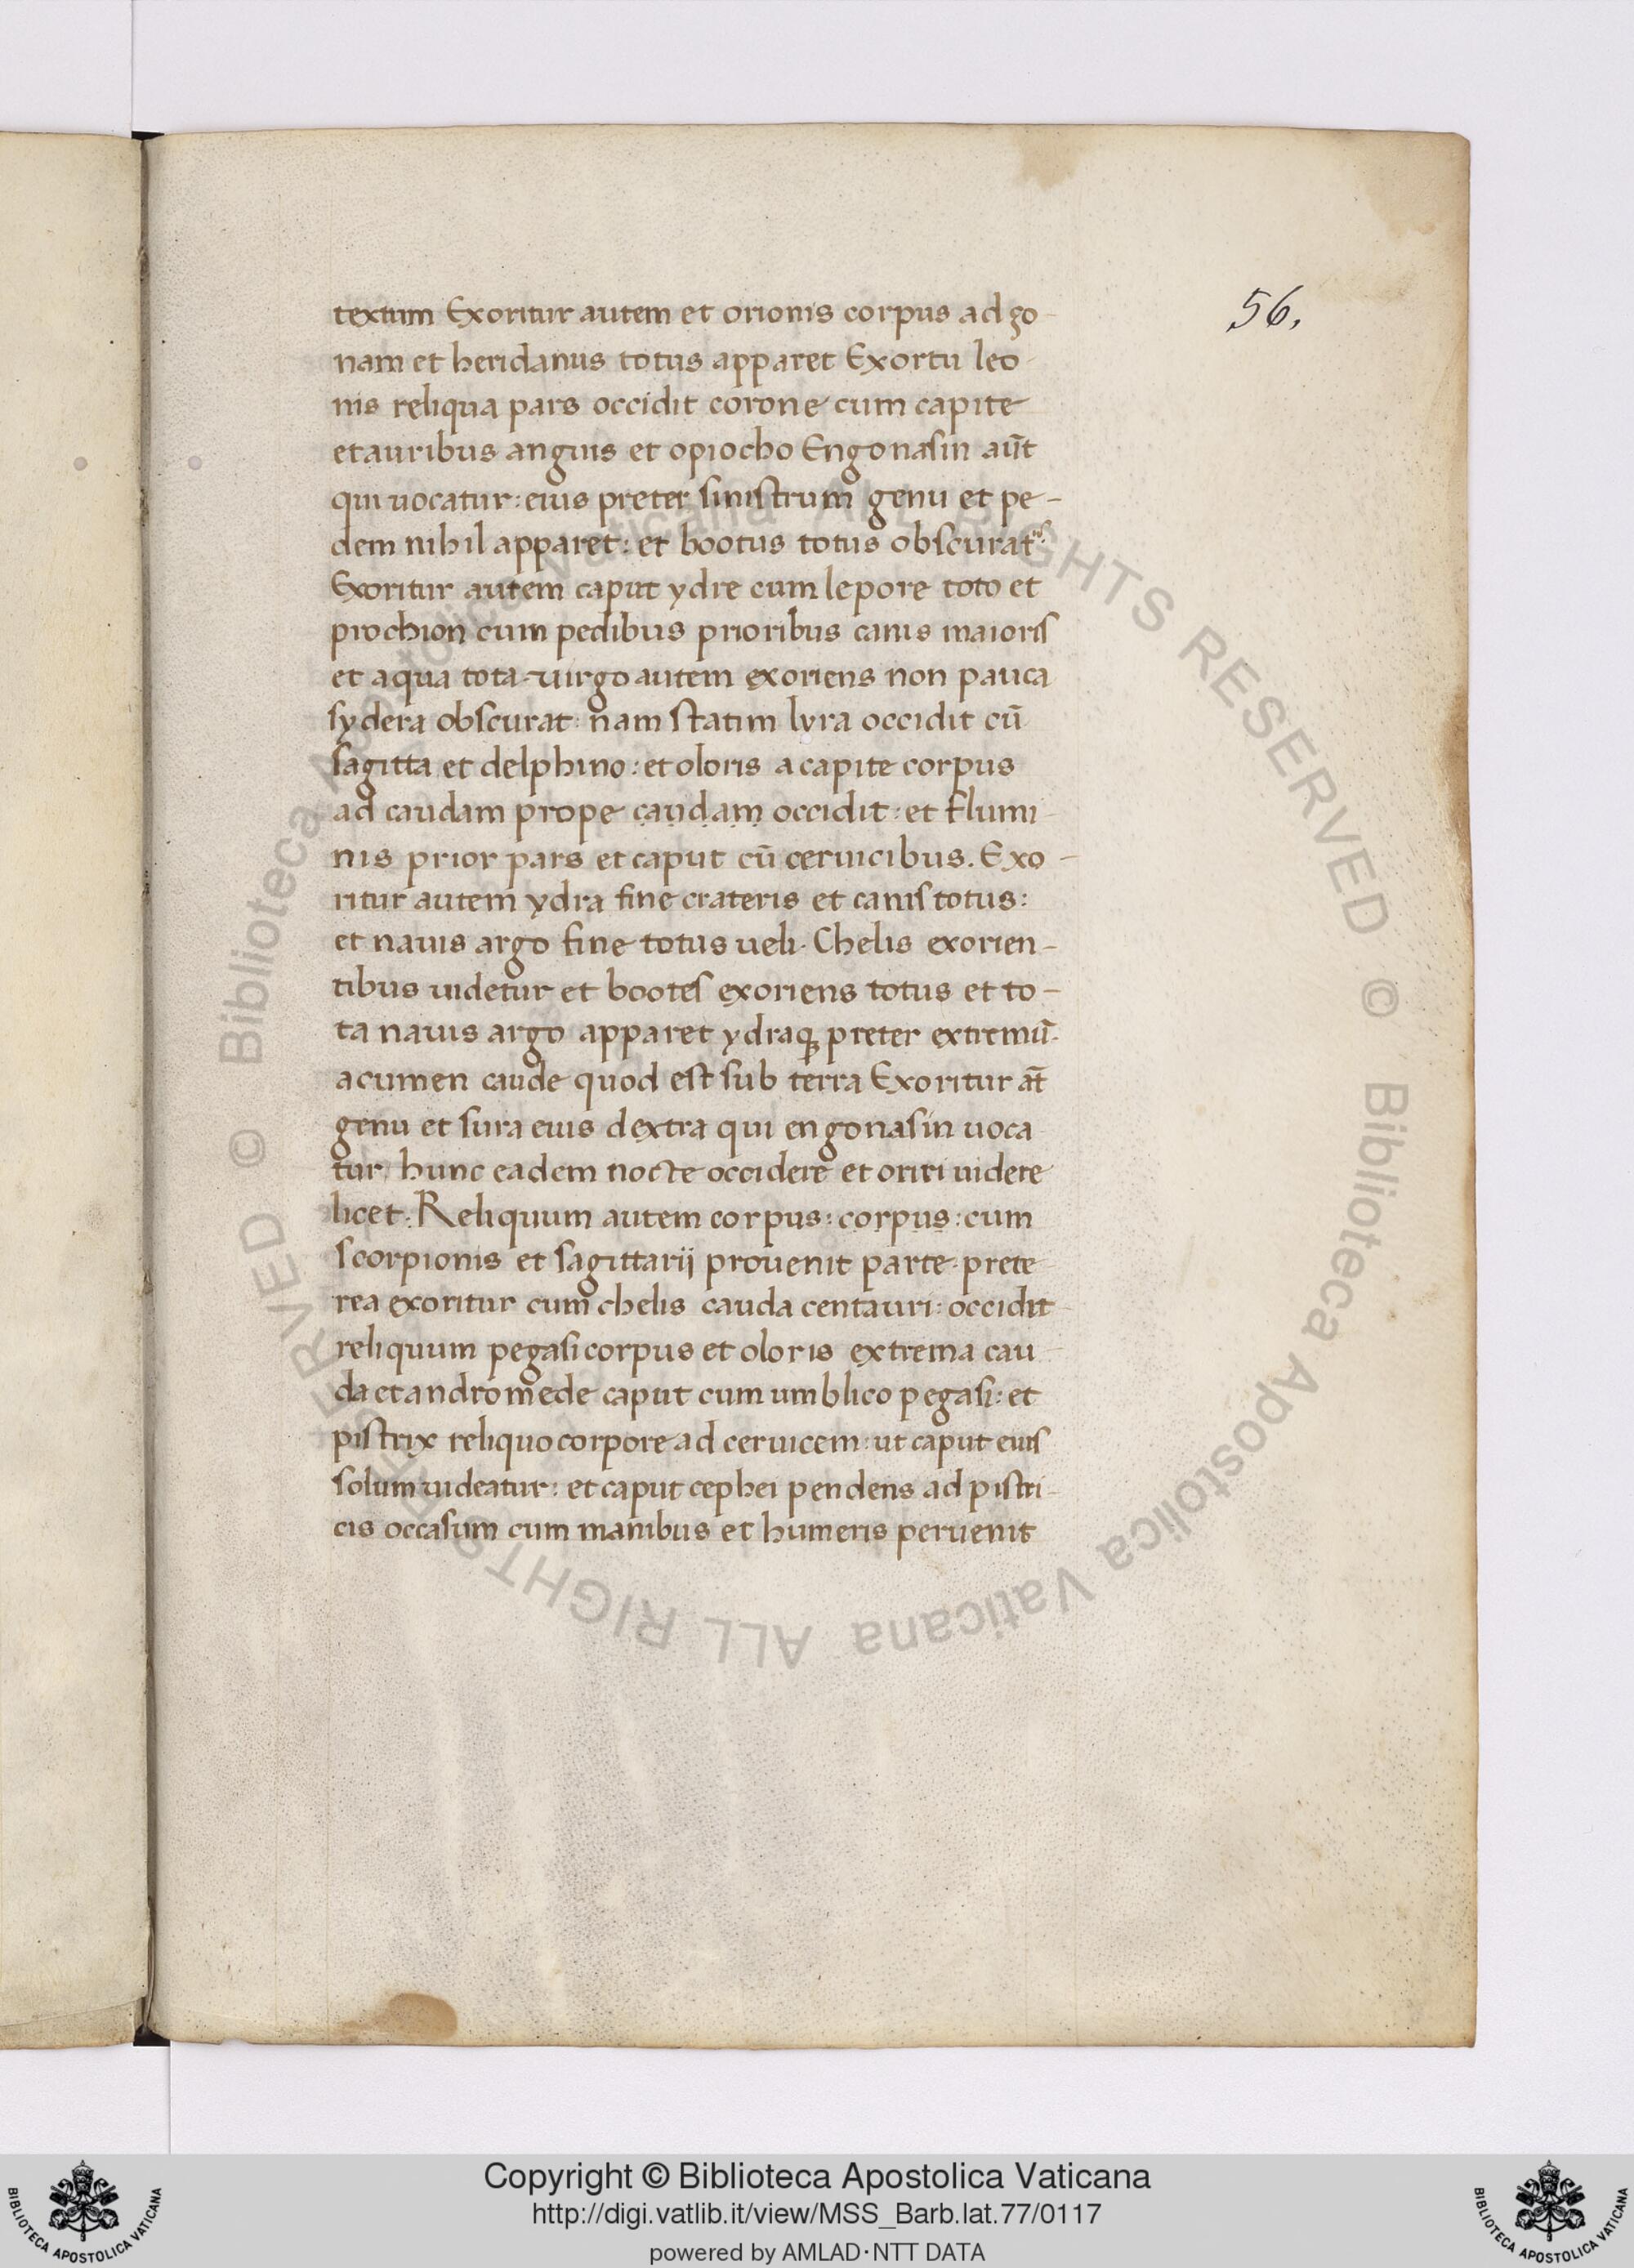 56.
textum Exoritur autem et orionis corpus ad go-
nam et heridanus totus apparet Exortu leo-
nis reliqua pars occidit corone cum capite
et auribus anguis et opiocho Engonasin aūt
qui uocatur: eius preter sinistrum genu et pe-
dem nihil apparet: et bootus totus obscurat
Exoritur autem caput ydre cum lepore toto et
prochion cum pedibus prioribus canis maioris
et aqua tota uirgo autem exoriens non pauca
sydera obscurat: nam statim lyra occidit cū
sagitta et delphino: et oloris a capite corpus
ad caudam prope caudam occidit: et flumi-
nis prior pars et caput cū ceruicibus. Exo-
ritur autem ydra fine crateris et canis totus:
et nauis argo fine totus ueli. Chelis exorien-
tibus uidetur et bootes exoriens totus et to-
ta nauis argo apparet ydraqꝫ preter extremū
acumen caude quod est sub terra Exoritur at̄
genu et sura eius dextra qui engonasin uoca-
tur, hunc eadem nocte occidere et oriri uidere
licet: Reliquum autem corpus: corpus: cum
scorpionis et sagittarij prouenit parte prete-
rea exoritur cum chelis cauda centauri: occidit
reliquum pegasi corpus et oloris extrema cau-
da et andromede caput cum umblico pegasi: et
pistrix reliquo corpore ad ceruicem: ut caput eius
solum uideatur: et caput cephei pendens ad pistri-
cis occasum cum manibus et humeris peruenit
© Biblioteca Apostolica Vaticana ALL RIGHTS RESERVED © Biblioteca Apostolica Vaticana ALL RIGHTS RESERVED
Copyright © Biblioteca Apostolica Vaticana
http://digi.vatlib.it/view/MSS_Barb.lat.77/0117
powered by AMLAD·NTT DATA
BIBLIOTECA APOSTOLICA VATICANA
BIBLIOTECA APOSTOLICA VATICANA